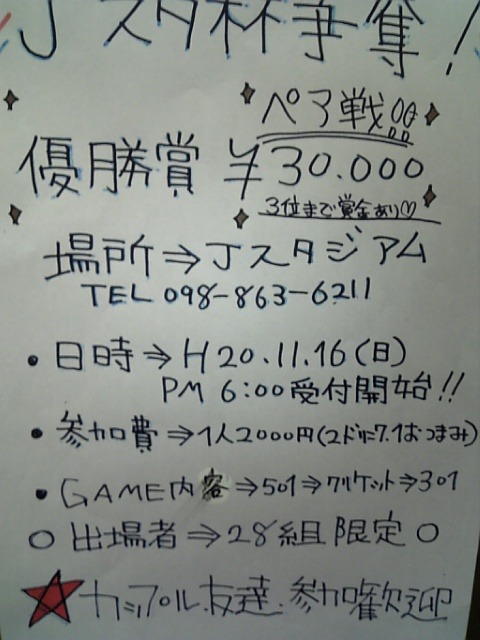 Jスタ杯争奪!
ペア戦!!
優勝賞 ¥30.000
3位まで賞金あり♡
場所⇒Jスタジアム
TEL 098-863-6211
・日時⇒H20.11.16(日)
PM 6:00受付開始!!
・参加費⇒1人2000円(2ドリンク.1おつまみ)
・GAME内容⇒501⇒クリケット⇒301
○出場者⇒28組限定○
★カップル.友達.参加歓迎